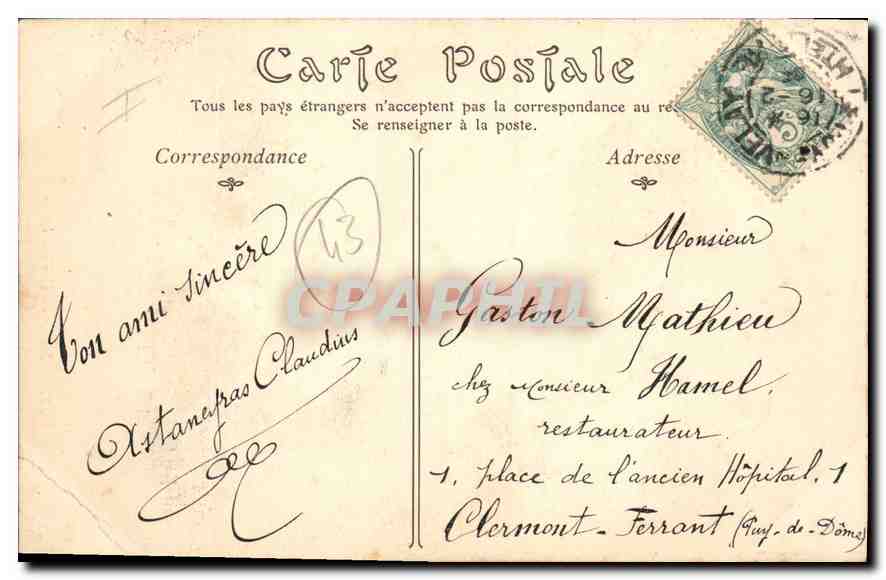 Carte Postale
Tous les pays étrangers n'acceptent pas la correspondance au
Se renseigner à la poste.
Correspondance
Adresse
43
Ton ami sincère
Astaneyras Claudius
Monsieur
Gaston Mathieu
chez Monsieur Hamel,
restaurateur.
1, place de l'ancien Hôpital, 1
Clermont-Ferrant (Puy-de-Dôme)
CPAPHIL